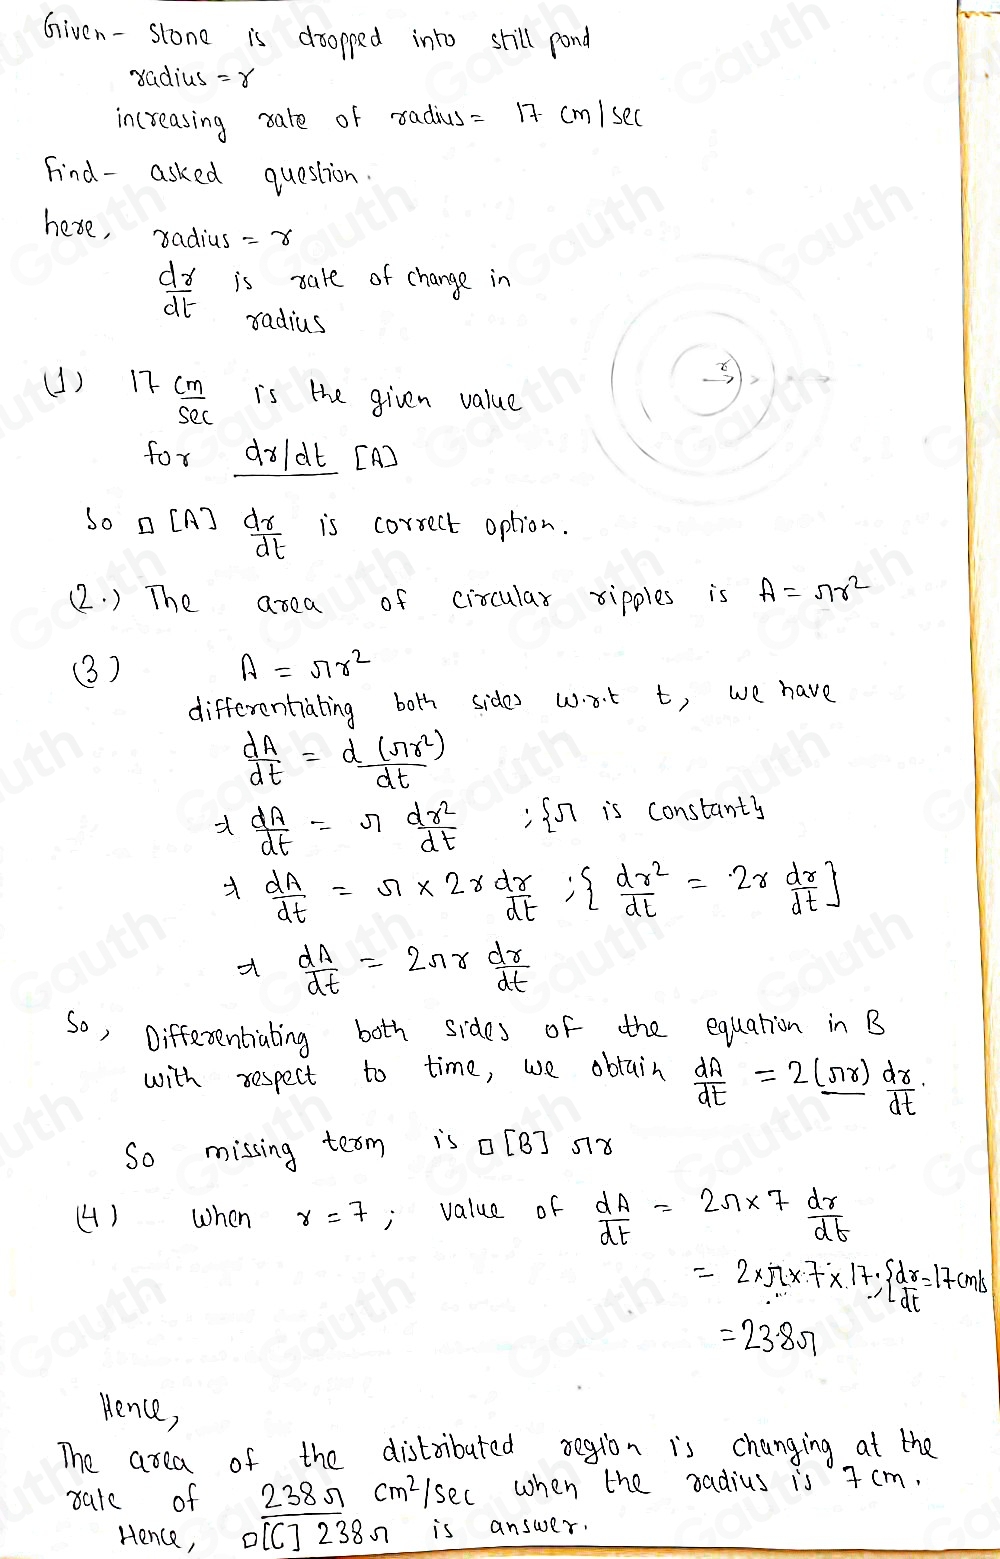 Given - Stone is dropped into still pond
radius = r
increasing rate of radius = 17 cm/sec
Find - asked question.
here, radius = r
dr/dt is rate of change in
radius
r
(1) 17 cm/sec is the given value
for dr/dt [A]
So □ [A] dr/dt is correct option.
(2.) The area of circular ripples is A = πr²
(3) A = πr²
differentiating both sides w.r.t t, we have
dA/dt = d(πr²)/dt
⇒ dA/dt = π dr²/dt ; {π is constant}
⇒ dA/dt = π × 2r dr/dt ; { dr²/dt = 2r dr/dt }
⇒ dA/dt = 2πr dr/dt
So, Differentiating both sides of the equation in B
with respect to time, we obtain dA/dt = 2(πr) dr/dt.
So missing term is □ [B] πr
(4) when r = 7 ; value of dA/dt = 2π×7 dr/dt
= 2×π×7×17 ; {dr/dt = 17cm/s
= 238π
Hence,
The area of the distributed region is changing at the
rate of 238π cm²/sec when the radius is 7 cm.
Hence, □[C] 238π is answer.
Gauth